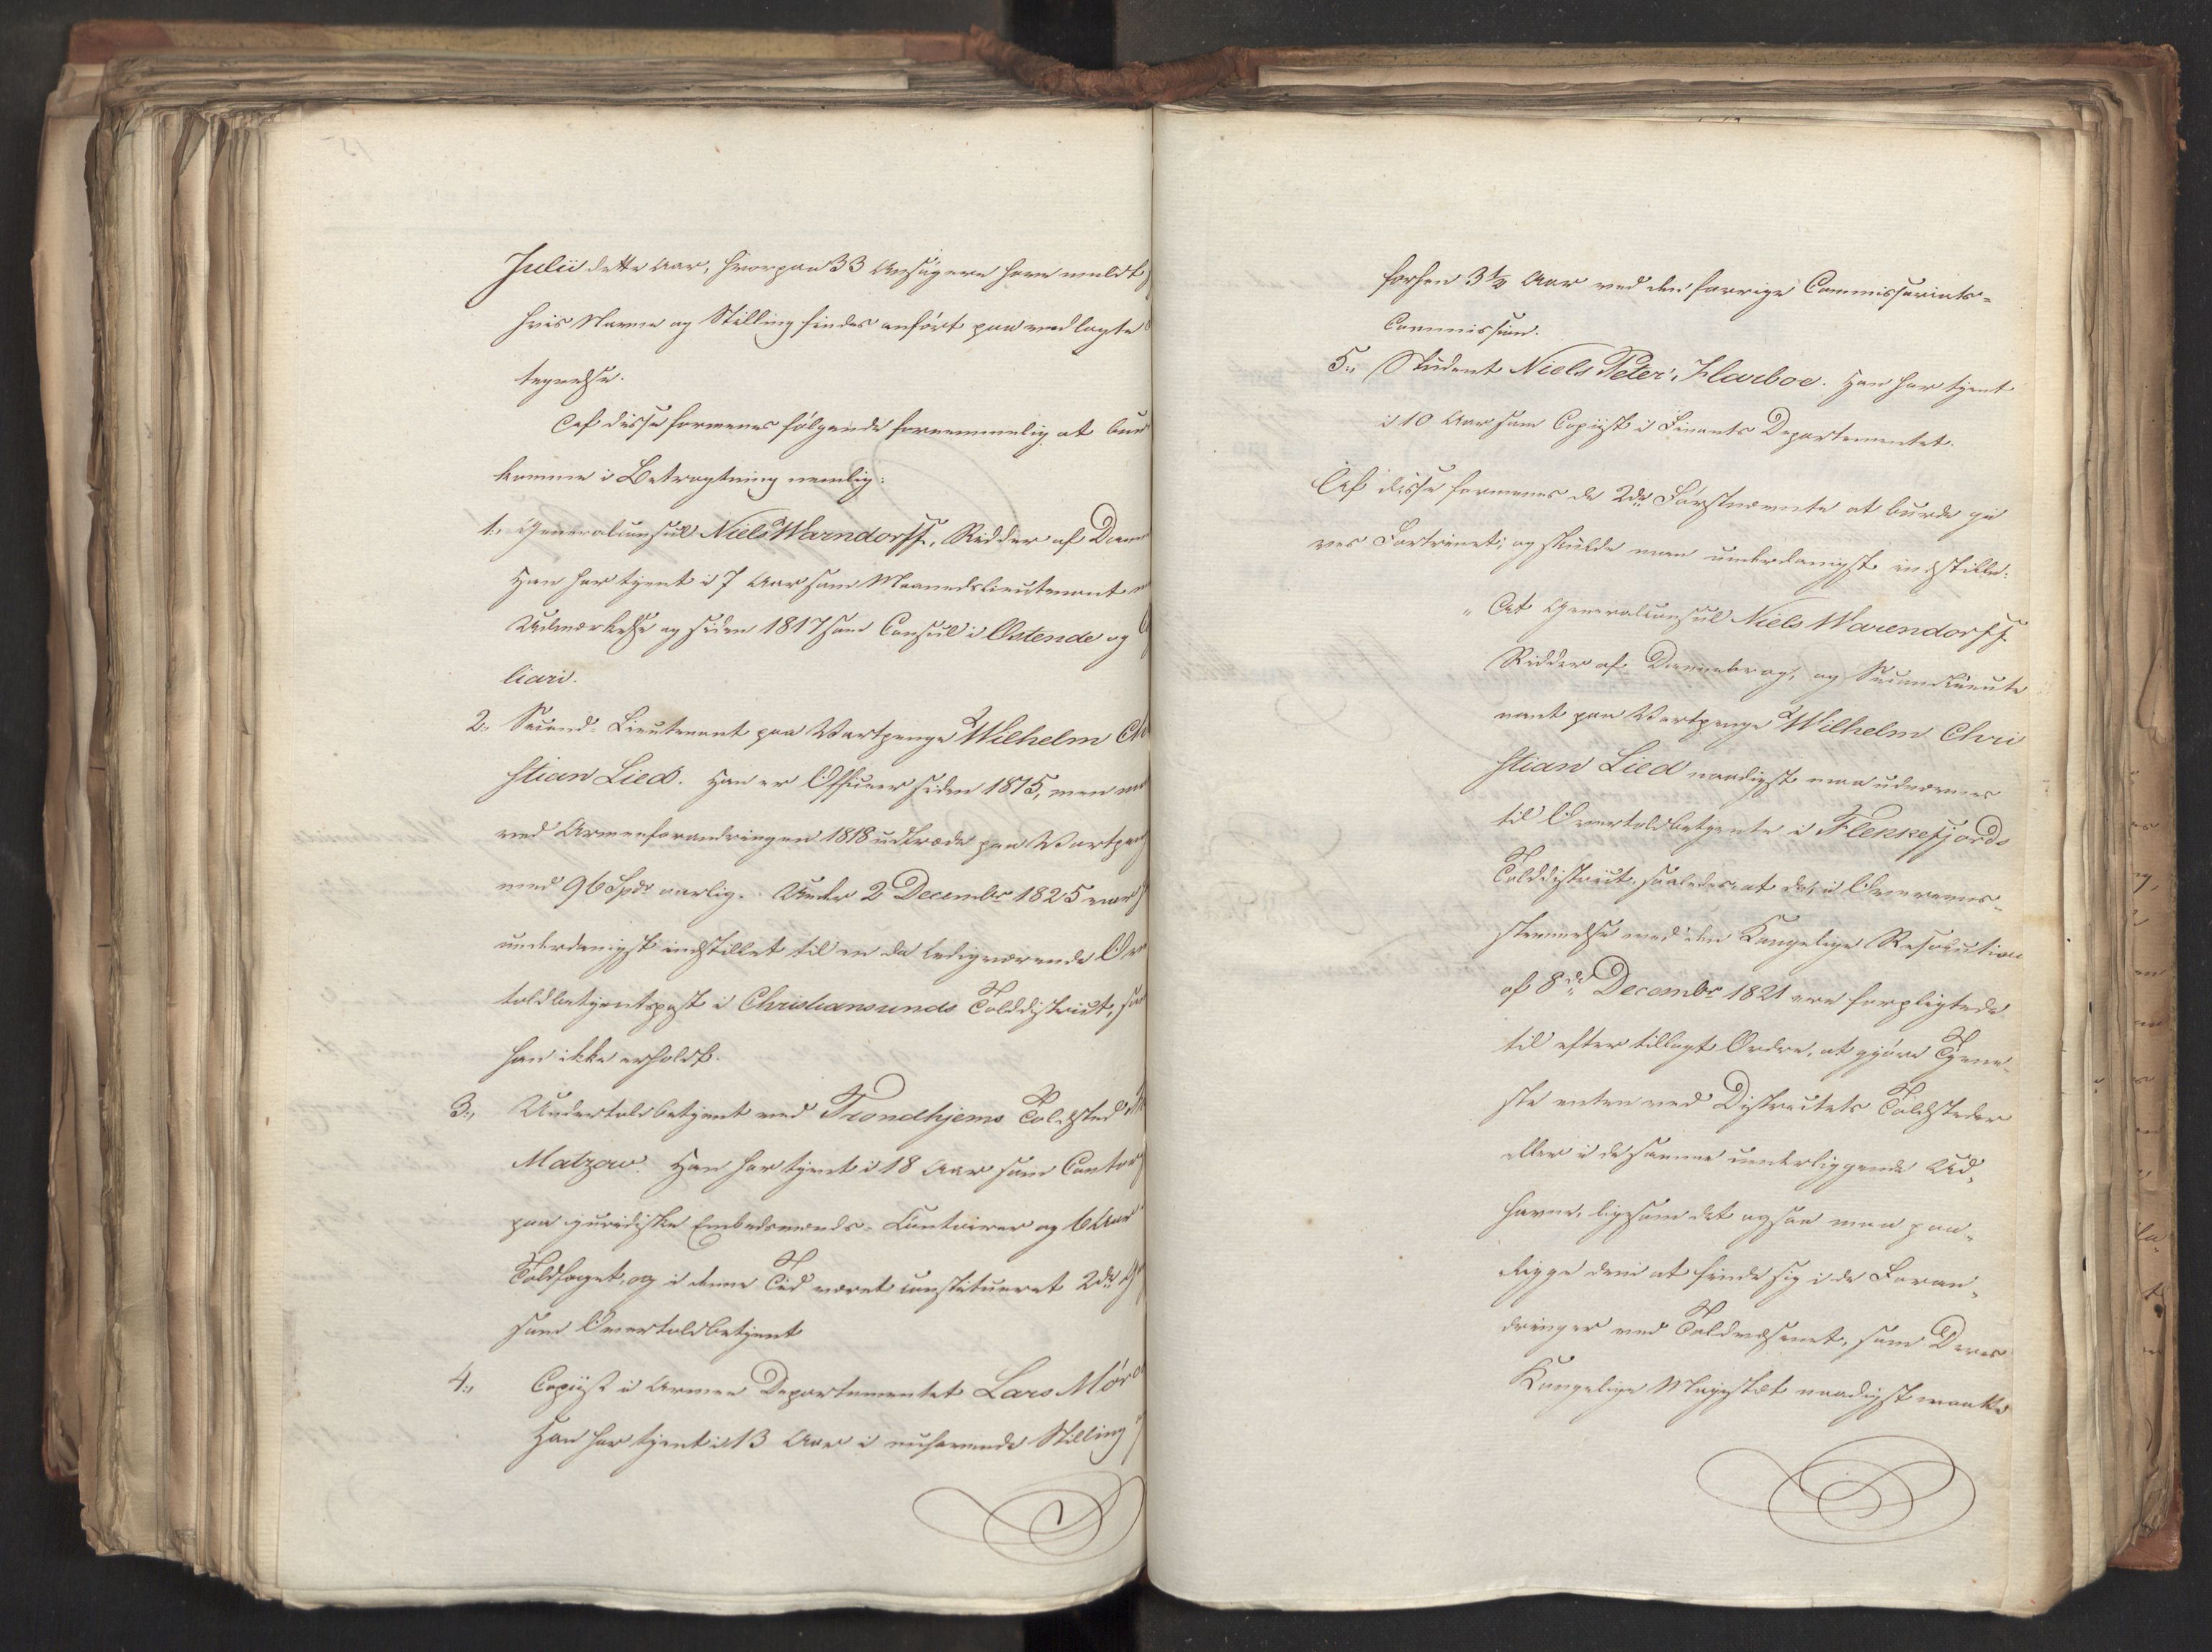 Julii dette Aar, hvorpaa 33 Ansøgere have meldt
hvis Navne og Stilling findes anført paa vedlagte
tegnelse.
Af disse formenes følgende fornemmelig at bur
komme i Betragtning nemlig:
1., Generalconsul Niels Warndorff, Ridder af Dann
Han har tjent i 7 Aar som Maanedslieutenant
Udmærkelse og siden 1817 som Consul i Ostende og
liari.
2., Second-Lieutenant paa Vartpenge Wilhelm Ch
stian Lied. Han er Officeer siden 1815, men
ved Armeeforandringen 1818 udtræde paa Vartpen
med 96 Spdr aarlig. Under 2 Decembr 1825 var
underdanigst indstillet til en da ledigværende Ov
toldbetjentpost i Christiansunds Tolddistrict,
han ikke erholdt.
3., Undertoldbetjent ved Trondhjems Toldsted
Matzow. Han har tjent i 18 Aar som Contor
paa juridiske Embedsmænds-Contoirer og 6 Aar
Toldfaget, og i denne Tid været constitueret 2de
som Overtoldbetjent
4., Copiist i Armee Departementet Lars
Han har tjent i 13 Aar i nuhavende Stilling
forhen 3½ Aar ved den forrige Commissariats-
Commission.
5., Student Niels Peter Klarboe. Han har tjent
i 10 Aar som Copiist i Finants Departementet.
Af disse formenes de 2de Førstnævnte at burde gi
ves Fortrinet; og skulde man underdanigst indstille:
" At Generalconsul Niels Warendorff
Ridder af Dannebrog, og Secondlieute
nant paa Vartpenge Wilhelm Chri
stian Lied naadigst maa udnævnes
til Overtoldbetjente i Flekkefjords
Tolddistrict, saaledes at de, i Overeens-
stemmelse med den Kongelige Resolution
af 8de Decembr 1821 ere forpligtede
til efter tillagt Ordre, at gjøre Tjene-
ste enten ved Districtets Toldsteder
eller i de samme underliggende Ud-
havne, ligesom det ogsaa maa paa-
ligge dem at finde sig i de Foran-
dringer ved Toldvæsenet, som Deres
Kongelige Majestæt naadigst maatte